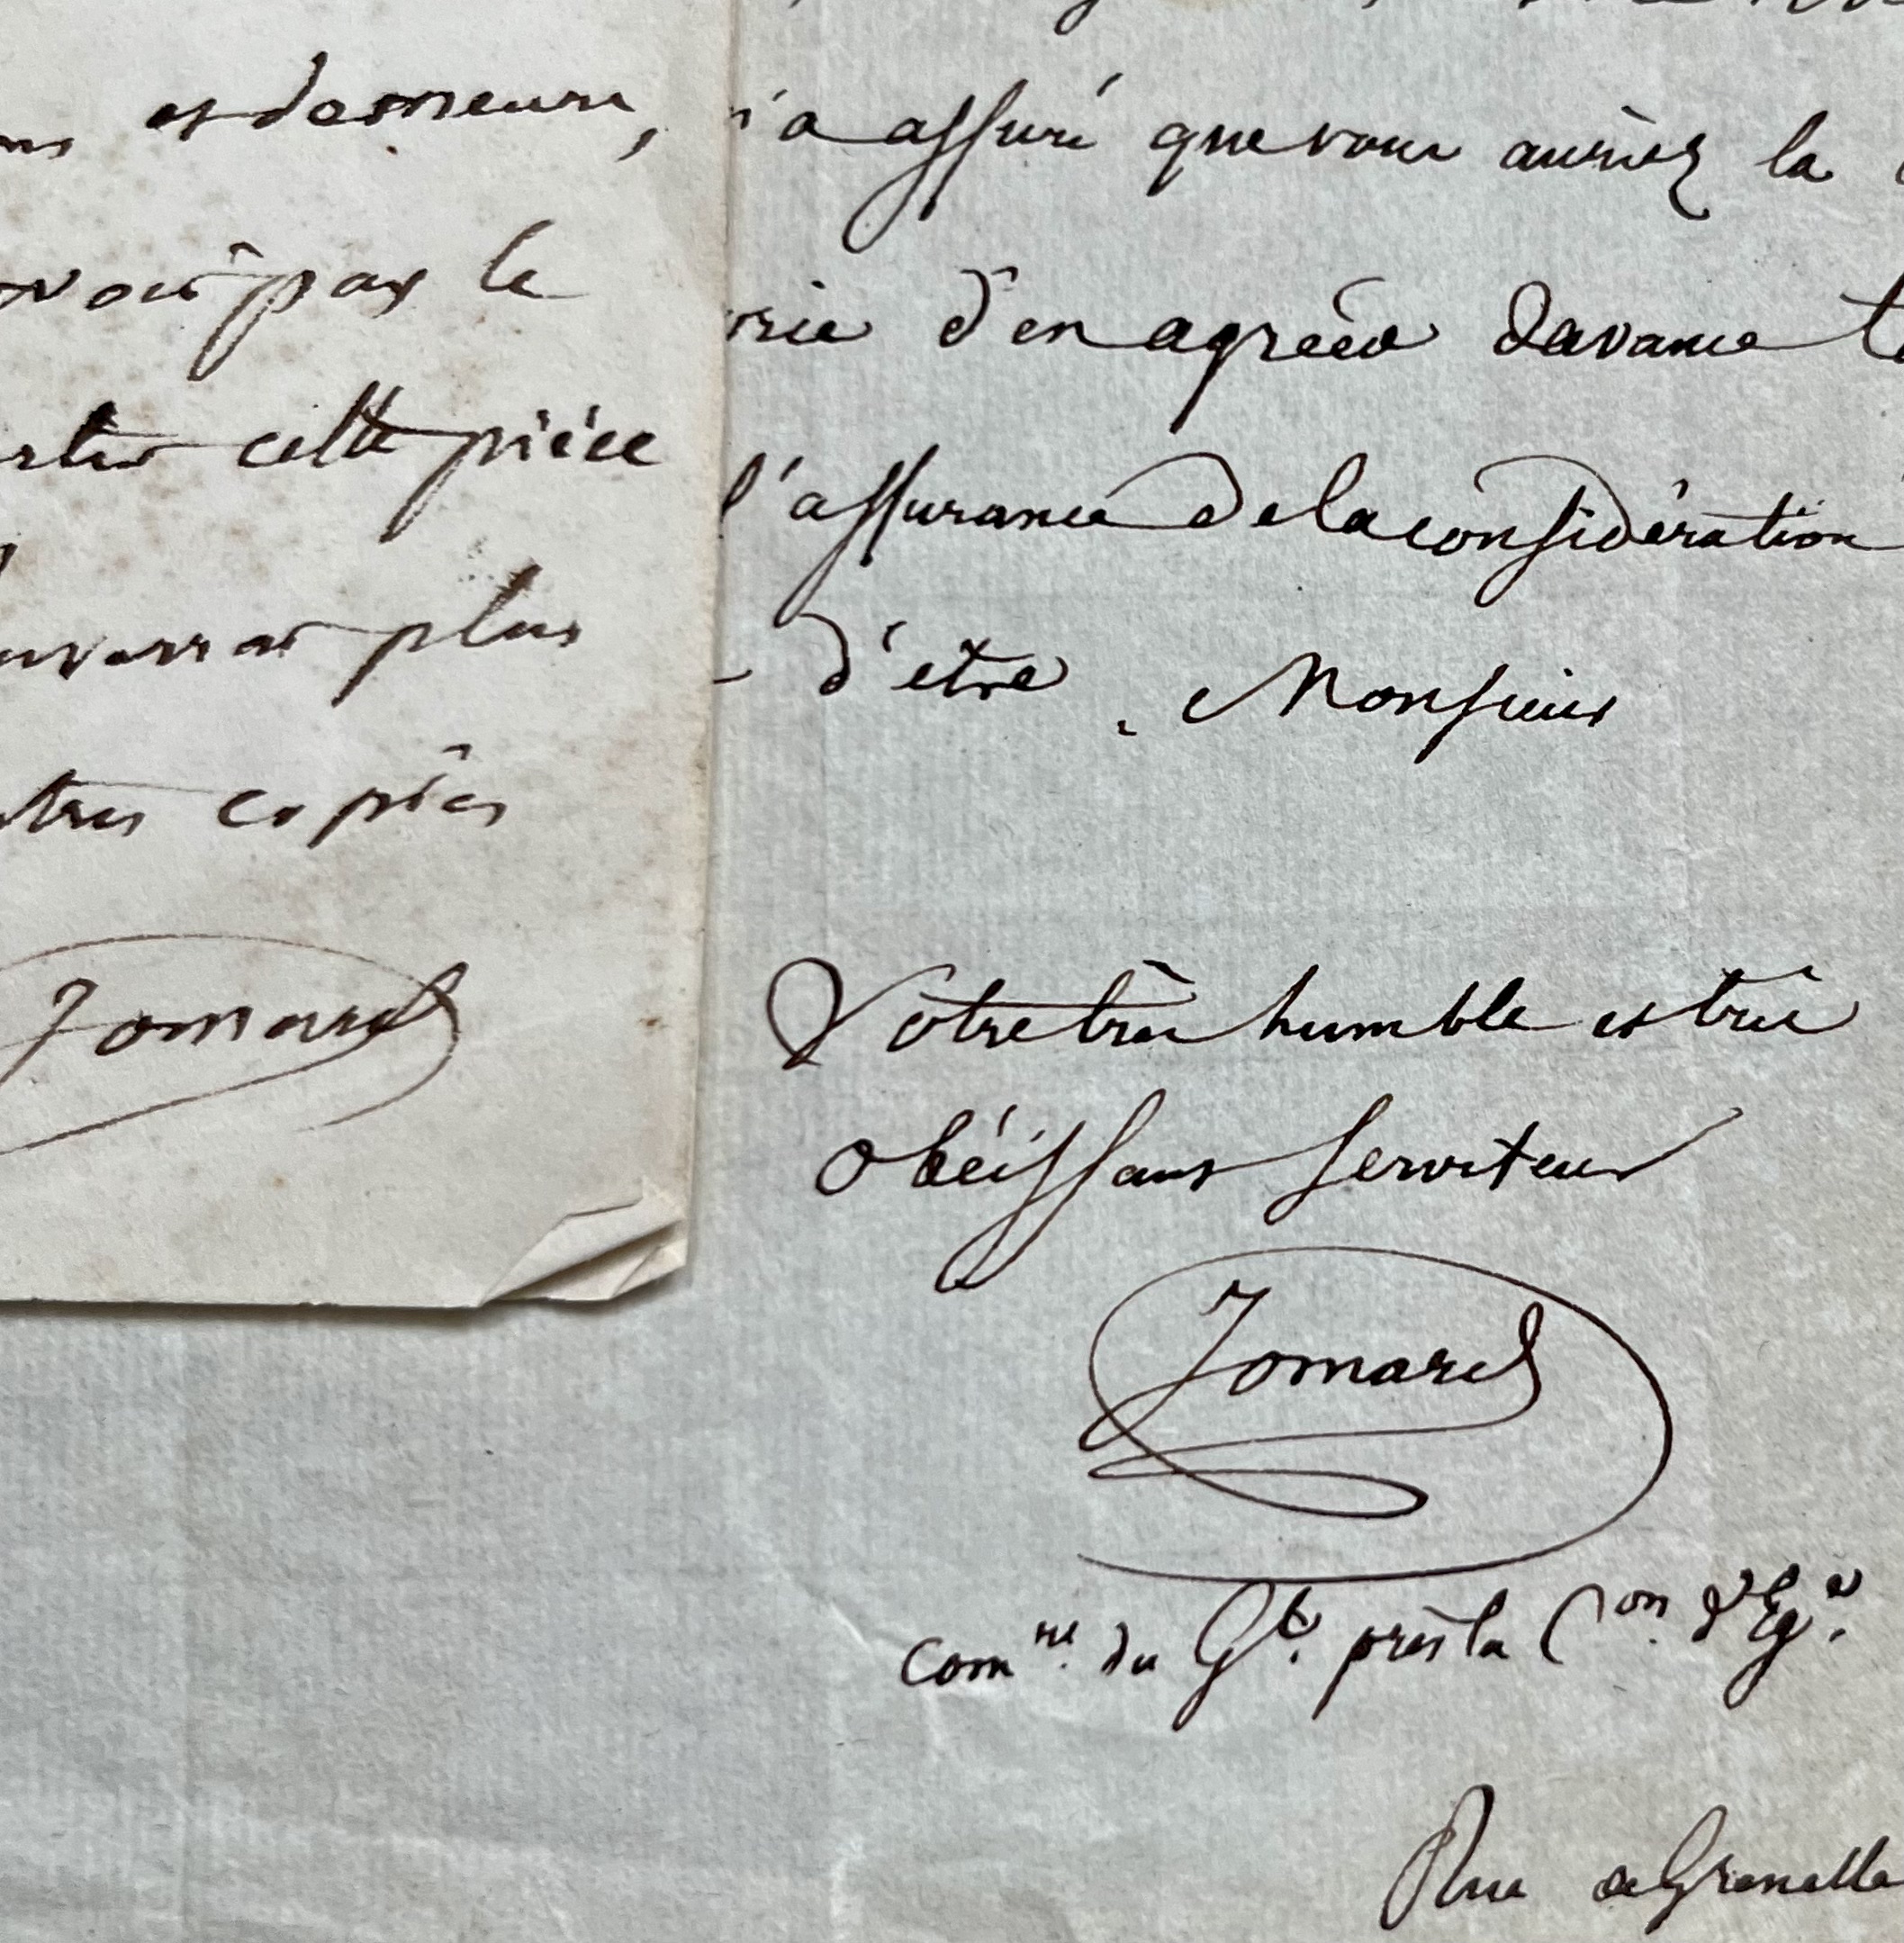 et demeure,
pas le
cette pièce
plus
copies
Jomard
a assuré que vous auriez la
d'en agréer davance
l'assurance de la considération
d'etre, Monsieur
Votre très humble et très
obéissant serviteur
Jomard
Com.re du G.t près la C.on d'Eg.e
Rue de Grenelle